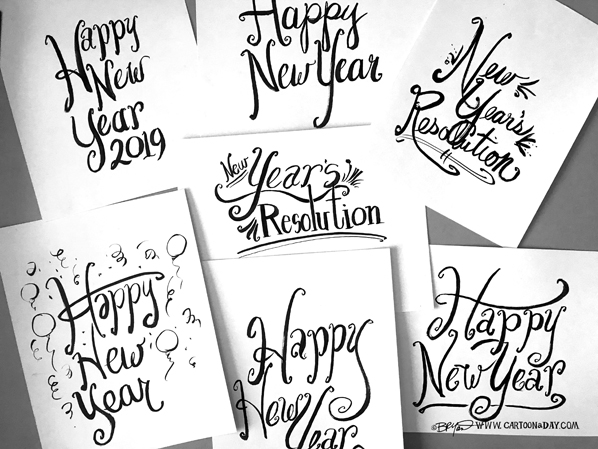 Happy
New
Year
2019
Happy
New Year
New
Year's
Resolution
New
Year's
Resolution
Happy
New
Year
Happy
New
Year
Happy
New Year
©BRYAN WWW.CARTOONADAY.COM